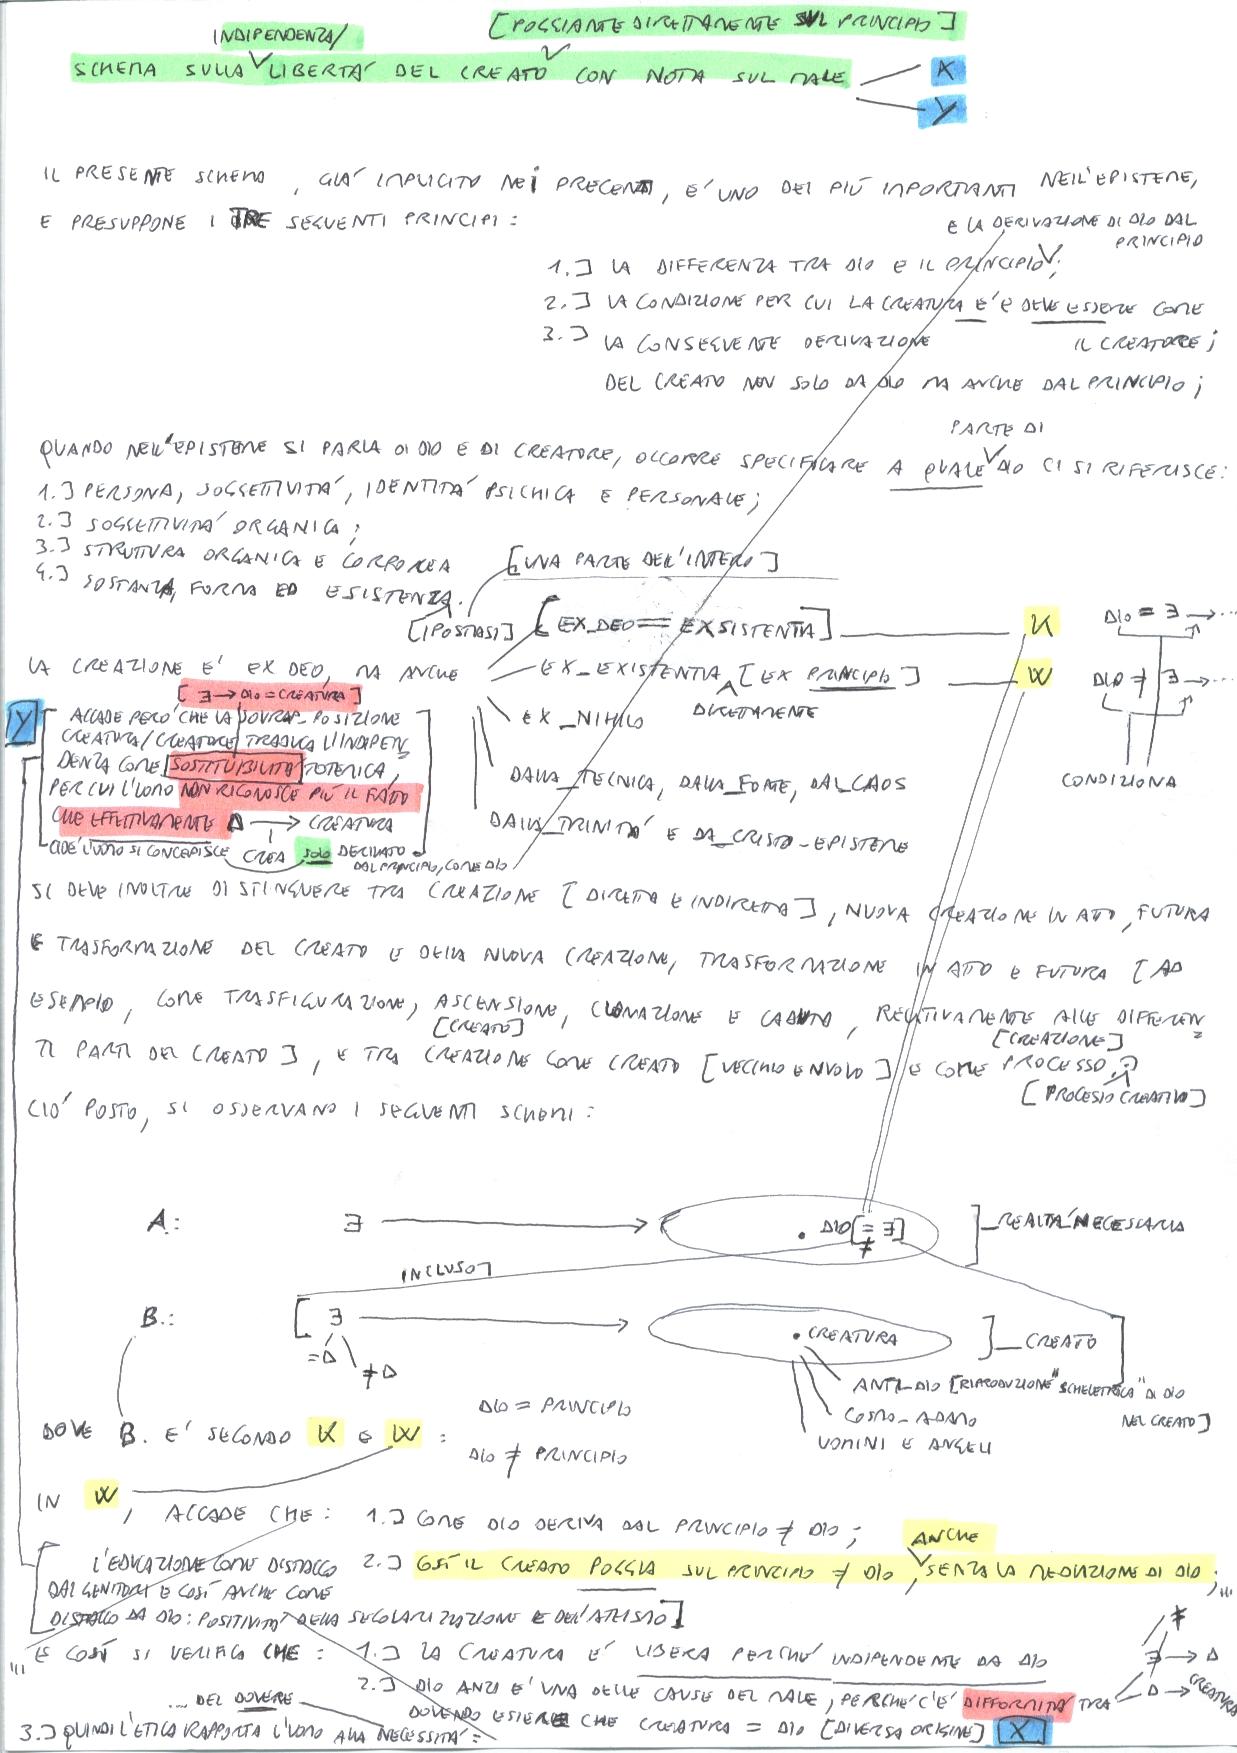 INDIPENDENZA/ [POGGIANTE DIRETTAMENTE SUL PRINCIPIO]
SCHEMA SULLA LIBERTÀ DEL CREATO CON NOTA SUL MALE
X
Y
IL PRESENTE SCHEMA, GIÀ IMPLICITO NEI PRECEDENTI, È UNO DEI PIÙ IMPORTANTI NELL'EPISTEME,
E PRESUPPONE I TRE SEGUENTI PRINCIPI:
E LA DERIVAZIONE DI DIO DAL PRINCIPIO
1.] LA DIFFERENZA TRA DIO E IL PRINCIPIO;
2.] LA CONDIZIONE PER CUI LA CREATURA È E DEVE ESSERE COME IL CREATORE;
3.] LA CONSEGUENTE DERIVAZIONE
DEL CREATO NON SOLO DA DIO MA ANCHE DAL PRINCIPIO;
PARTE DI
QUANDO NELL'EPISTEME SI PARLA DI DIO E DI CREATORE, OCCORRE SPECIFICARE A QUALE DIO CI SI RIFERISCE:
1.] PERSONA, SOGGETTIVITÀ, IDENTITÀ PSICHICA E PERSONALE;
2.] SOGGETTIVITÀ ORGANICA;
3.] STRUTTURA ORGANICA E CORPOREA
4.] SOSTANZA, FORMA ED ESISTENZA.
[UNA PARTE DELL'INTERO]
[IPOSTASI]
[EX_DEO == EXSISTENTIA] K
DIO = ∃ → ...
LA CREAZIONE È EX DEO, MA ANCHE
EX_EXISTENTIA [EX PRINCIPIO] W
DIRETTAMENTE
DIO ≠ ∃ → ...
CONDIZIONA
EX_NIHILO
DALLA_TECNICA, DALLA_FONTE, DAL_CAOS
DALLA_TRINITÀ E DA_CRISTO-EPISTEME
[∃ → DIO = CREATURA]
Y
ACCADE PERÒ CHE LA SOVRAP_POSIZIONE
CREATURA/CREATORE TRADUCA L'INDIPEN
DENZA COME SOSTITUIBILITÀ TOTEMICA,
PER CUI L'UOMO NON RICONOSCE PIÙ IL FATTO
CHE EFFETTIVAMENTE Δ → CREATURA
CREA
CIOÈ L'UOMO SI CONCEPISCE SOLO DERIVATO
DAL PRINCIPIO, COME DIO
SI DEVE INOLTRE DISTINGUERE TRA CREAZIONE [DIRETTA E INDIRETTA], NUOVA CREAZIONE IN ATTO, FUTURA
E TRASFORMAZIONE DEL CREATO E DELLA NUOVA CREAZIONE, TRASFORMAZIONE IN ATTO E FUTURA [AD
ESEMPIO, COME TRASFIGURAZIONE, ASCENSIONE, CLONAZIONE E CADUTA, RELATIVAMENTE ALLE DIFFEREN
TI PARTI DEL CREATO], E TRA CREAZIONE COME CREATO [VECCHIO E NUOVO] E COME PROCESSO.
[CREATO]
[CREAZIONE]
[PROCESSO CREATIVO]
CIÒ POSTO, SI OSSERVANO I SEGUENTI SCHEMI:
A: ∃ → DIO [= ∃] REALTÀ NECESSARIA
≠
INCLUSO
B.: [∃ → CREATURA ] CREATO
=Δ ≠Δ
ANTI_DIO [RIPRODUZIONE "SCHELETRICA" DI DIO NEL CREATO]
COSMO-ADAMO
UOMINI E ANGELI
DOVE B. È SECONDO K E W:
DIO = PRINCIPIO
DIO ≠ PRINCIPIO
IN W, ACCADE CHE: 1.] COME DIO DERIVA DAL PRINCIPIO ≠ DIO;
ANCHE
2.] COSÌ IL CREATO POGGIA SUL PRINCIPIO ≠ DIO, SENZA LA MEDIAZIONE DI DIO;
L'EDUCAZIONE COME DISTACCO
DAI GENITORI E COSÌ ANCHE COME
DISTACCO DA DIO: POSITIVITÀ DELLA SECOLARIZZAZIONE E DELL'ATEISMO]
E COSÌ SI VERIFICA CHE: 1.] LA CREATURA È LIBERA PERCHÉ INDIPENDENTE DA DIO
2.] DIO ANZI È UNA DELLE CAUSE DEL MALE, PERCHÉ C'È DIFFORMITÀ TRA
≠
∃ → Δ
Δ → CREATURA
DOVENDO ESSERE CHE CREATURA = DIO [DIVERSA ORIGINE] X
... DEL DOVERE
3.] QUINDI L'ETICA RAPPORTA L'UOMO ALLA NECESSITÀ: